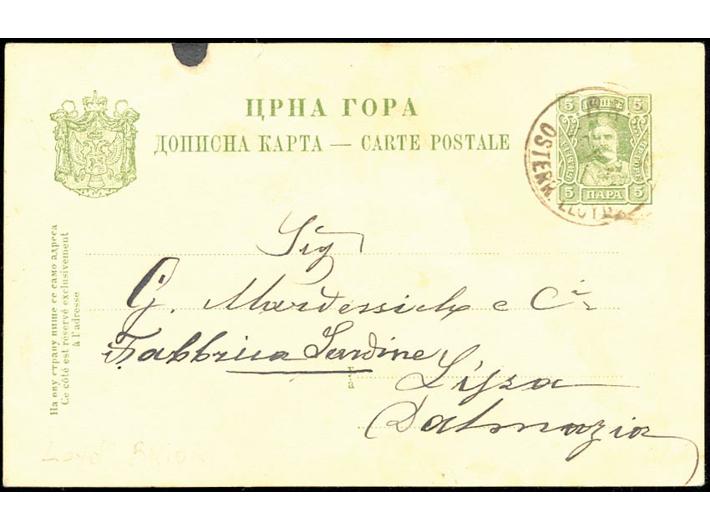 ЦРНА ГОРА
ДОПИСНА КАРТА — CARTE POSTALE
5 5
5 ПАРА 5
OSTERR. LLOYD
На ову страну пише се само адреса
Ce côté est réservé exclusivement
à l'adresse
Sig
G. Mardessich e C.i
Fabbrica Sardine
Lissa
Dalmazia